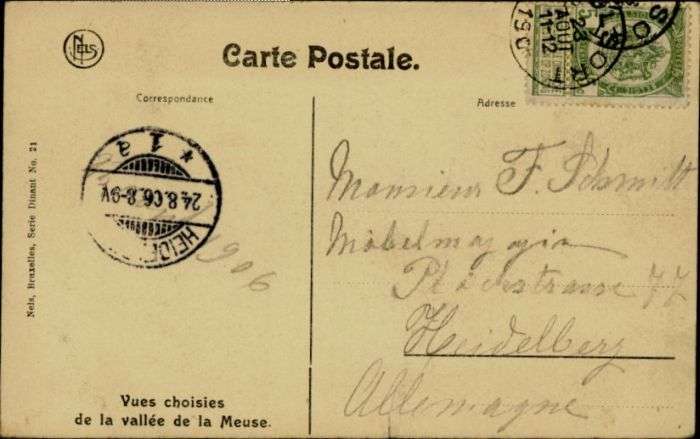 NELS
Carte Postale.
Correspondance
Adresse
22
AOUT
11-12
190
HEIDEL
24.8.06.8-9V.
* 1 a
1906
Monsieur F. Schmitt
Möbelmagazin
Plöckstrasse 77
Heidelberg
Allemagne
Nels, Bruxelles, Serie Dinant No. 21
Vues choisies
de la vallée de la Meuse.